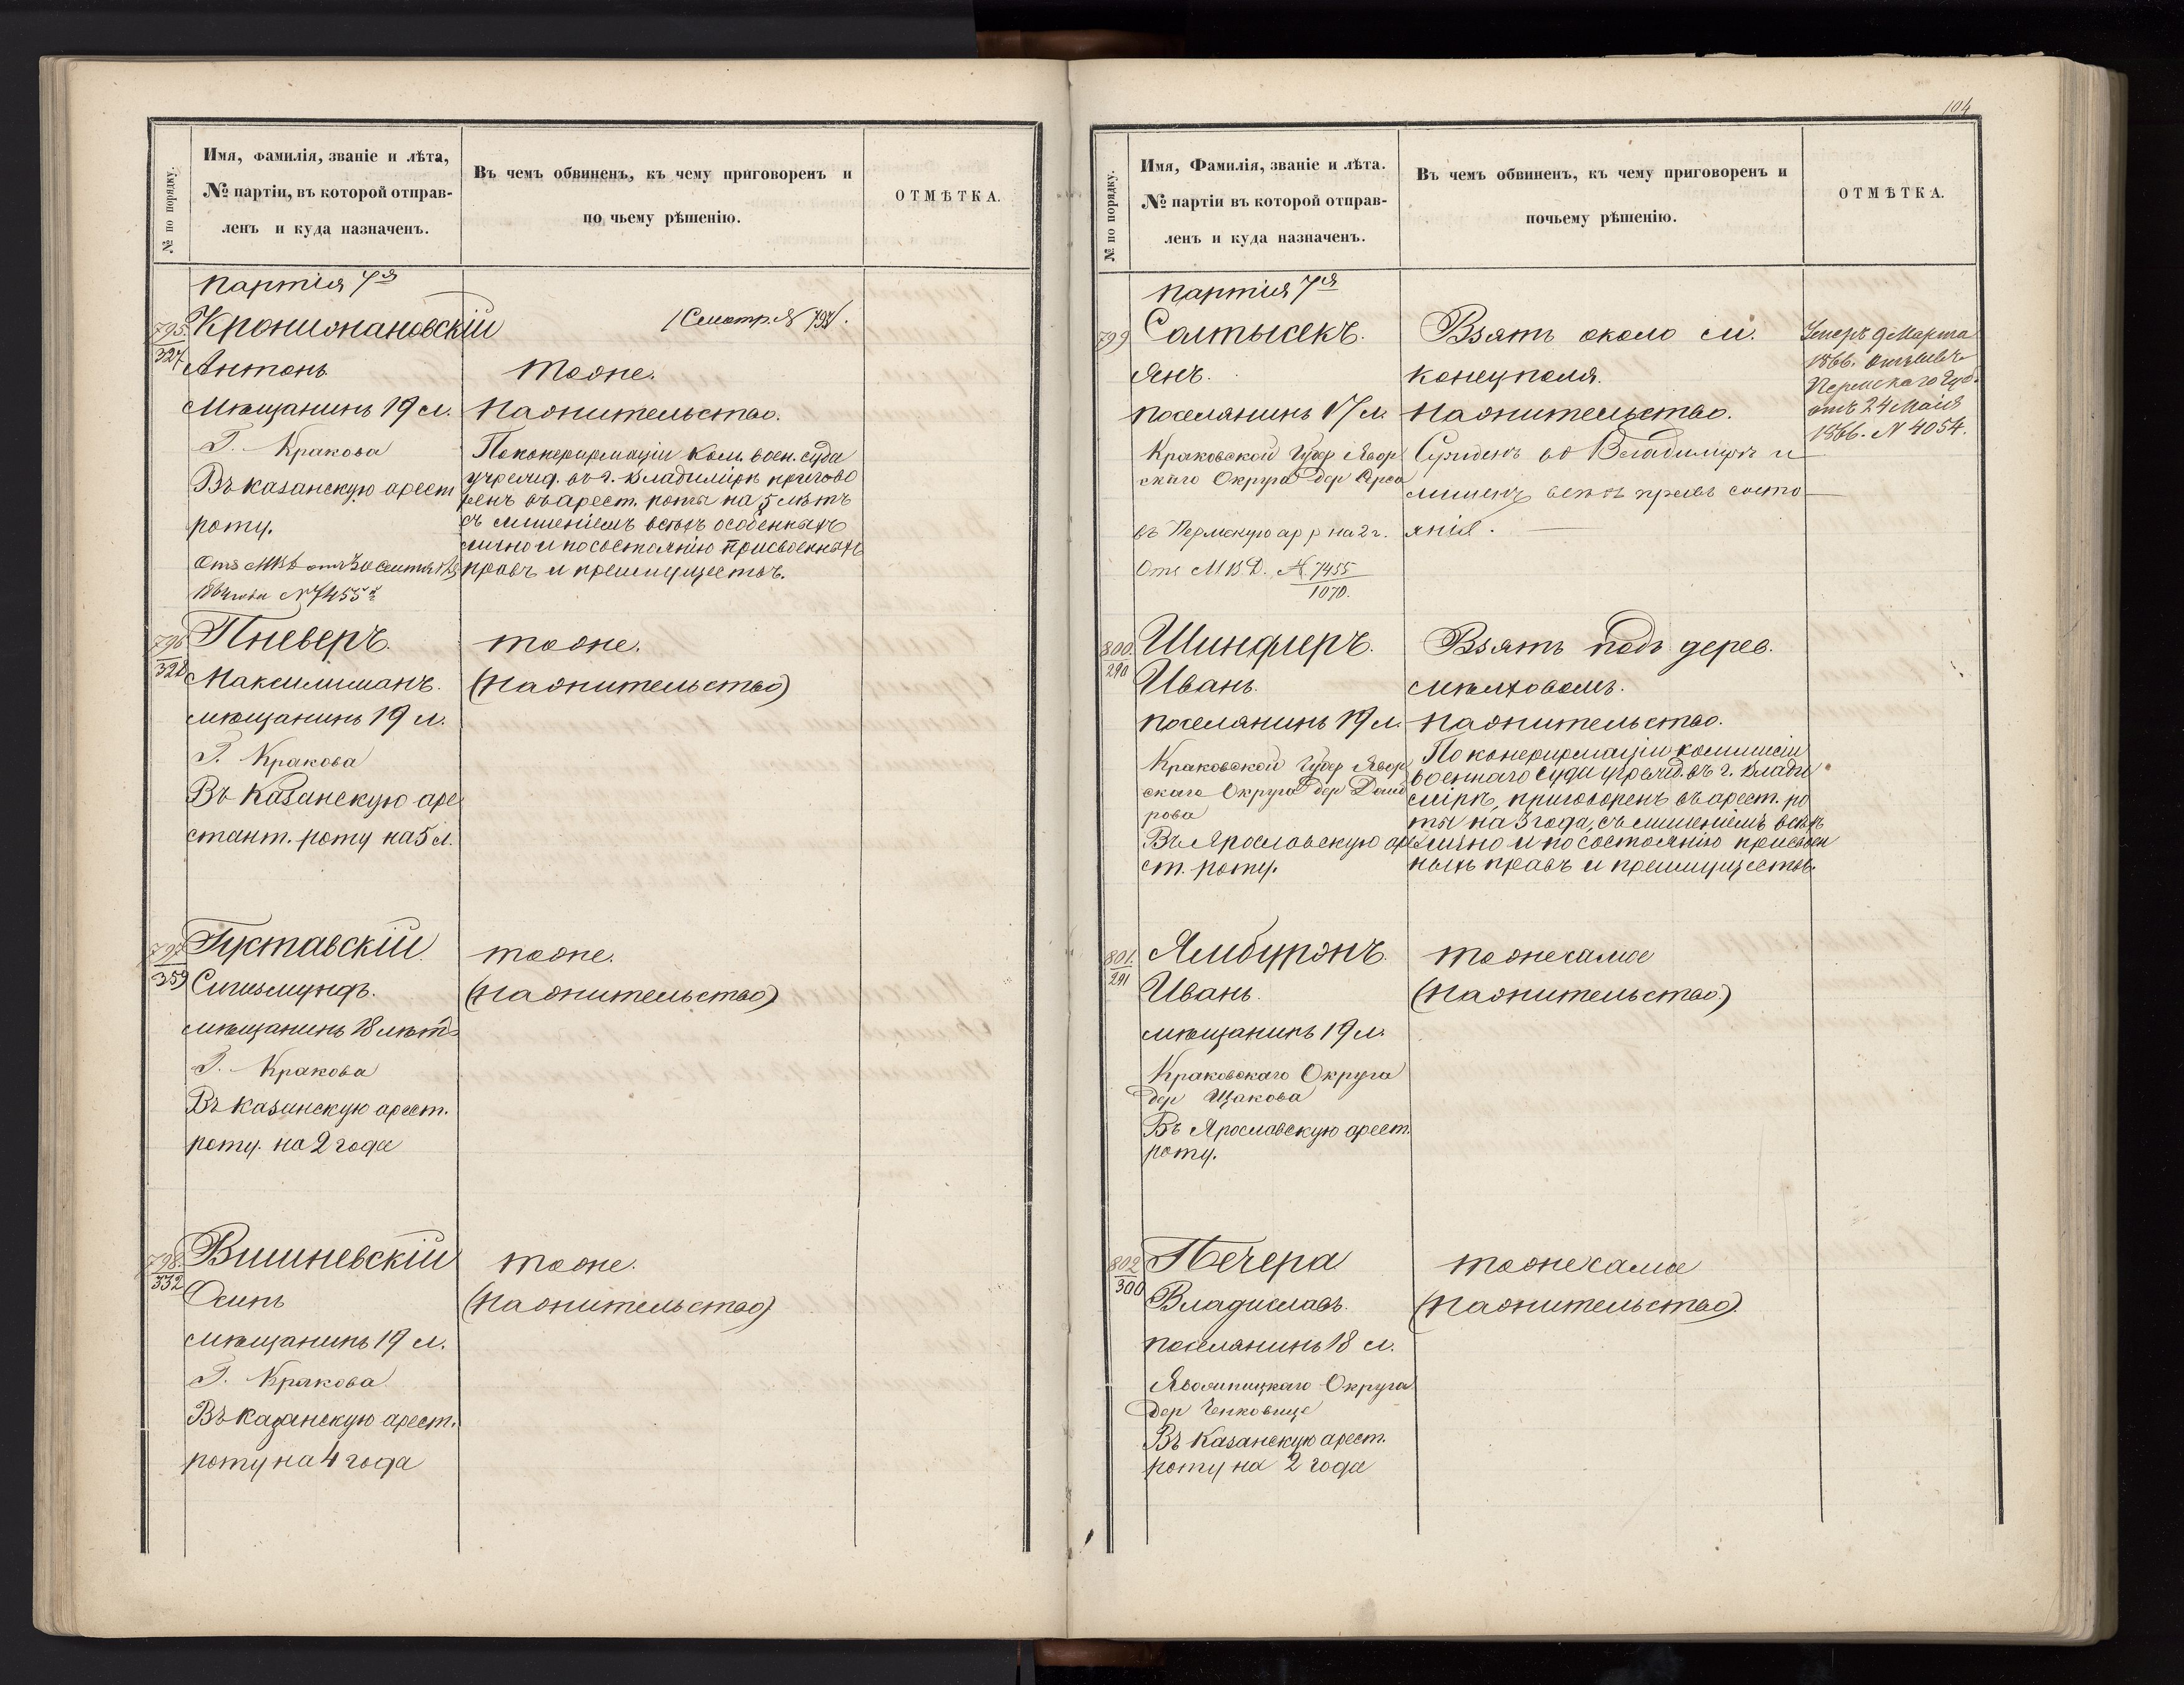 № по порядку.
Имя, фамилія, званіе и лѣта,
№ партіи, въ которой отправ-
ленъ и куда назначенъ.
Въ чемъ обвиненъ, къ чему приговоренъ и
по чьему рѣшенію.
ОТМѢТКА.
партія 7я
795.
327
Антонъ
Мѣщанинъ 19 л.
Г. Кракова
Въ казанскую арест
роту.
1864 года № 7455
/Смотр. №
тоже.
Пожительство.
По конфирмаціи Ком. воен. суда
учрежд. въ г. Владимірѣ пригово
ренъ въ арест. роты на 5 лѣтъ
съ лишеніемъ всѣхъ особенныхъ
лично и по состоянію присвоенныхъ
правъ и преимуществъ.
796
328
Пневеръ.
Максимиліанъ.
мѣщанинъ 19 л.
Г. Кракова
Въ Казанскую аре
стант. роту на 5 л.
тоже.
797.
359
Густавскій
Сигизмундъ.
мѣщанинъ 18 лѣтъ
Г. Кракова
Въ казанскую арест.
роту. на 2 года
тоже.
798.
332
Вишневскій
Осипъ
мѣщанинъ 19 л.
Г. Кракова
Въ казанскую арест.
роту на 4 года
тоже.
104
№ по порядку.
Имя, Фамилія, званіе и лѣта.
№ партіи въ которой отправ-
ленъ и куда назначенъ.
Въ чемъ обвиненъ, къ чему приговоренъ и
почьему рѣшенію.
ОТМѢТКА.
партія 7я
799
Салтысекъ.
Янъ.
поселянинъ 17 л.
Краковской Губер Явор
скаго Округа дер
въ Пермскую ар р на 2 г.
Отн М В Д. № 7455
1070.
Взятъ около м.
конецполя.
Сужденъ во Владимирѣ и
лишенъ всѣхъ правъ состо
янія.
Умеръ 9 Марта
1866. отзывъ
Пермскаго Губ.
отъ 24 Маія
1866. № 4054.
800.
290
Шинглеръ.
Иванъ.
поселянинъ 19 л.
Краковской Губер Явор
скаго Округа дер
рова
Въ Ярославскую аре
ст. роту.
Взятъ подъ дерев.
мѣлховомъ.
По конфирмаціи коммисіи
военнаго суда учрежд. въ г. Влади
мірѣ, приговоренъ въ арест. ро
ты на 3 года, съ лишеніемъ всѣхъ
лично и по состоянію присвоен
ныхъ правъ и преимуществъ.
801.
291
Иванъ.
мѣщанинъ 19 л.
Краковскаго Округа
дер Щакова
Въ Ярославскую арест.
роту.
тоже самое
802
300
Печера
Владиславъ.
поселянинъ 18 л.
Округа
дер Ченковице
Въ Казанскую арест.
роту на 2 года
тоже самое